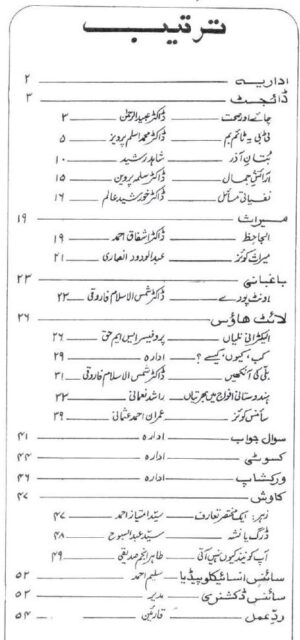 ترتیب
اداریہ ۲
ڈائجسٹ ۳
چائے اور صحت ڈاکٹر عبید الرحمٰن ۳
ڈاکٹر محمد اسلم پرویز ۵
بتانِ آذر شاہد رشید ۱۰
آرائشِ جمال ڈاکٹر سلمہ پروین ۱۵
نفسیاتی مسائل ڈاکٹر خورشید عالم ۱۶
میراث ۱۹
الجاحظ ڈاکٹر اشفاق احمد ۱۹
میراث کوئز عبدالودود انصاری ۲۱
باغبانی ۲۳
اونٹ پودے ڈاکٹر شمس الاسلام فاروقی ۲۳
لائٹ ھاؤس ۲۶
الیکٹرانی نلیاں پروفیسر ایس ایم حق ۲۶
کب، کیوں، کیسے؟ ادارہ ۲۹
بلی کی آنکھیں ڈاکٹر شمس الاسلام فاروقی ۳۱
ہندوستانی افواج میں بھرتیاں راشد نعمانی ۳۲
سائنس کوئز عمران احمد عثمانی ۳۹
سوال جواب ادارہ ۴۱
کسوٹی ادارہ ۴۴
ورکشاپ ادارہ ۴۶
کاوش ۴۷
زہر: ایک مختصر تعارف سیّد امتیاز احمد ۴۷
ڈرگ یا نشہ سیّد عبدالسبوح ۴۸
آپ کو نیند کیوں نہیں آتی طاہر انجم صدیقی ۴۹
سائنس انسائیکلوپیڈیا سلیم احمد ۵۲
سائنس ڈکشنری مدیر ۵۳
ردِّ عمل قارئین ۵۴